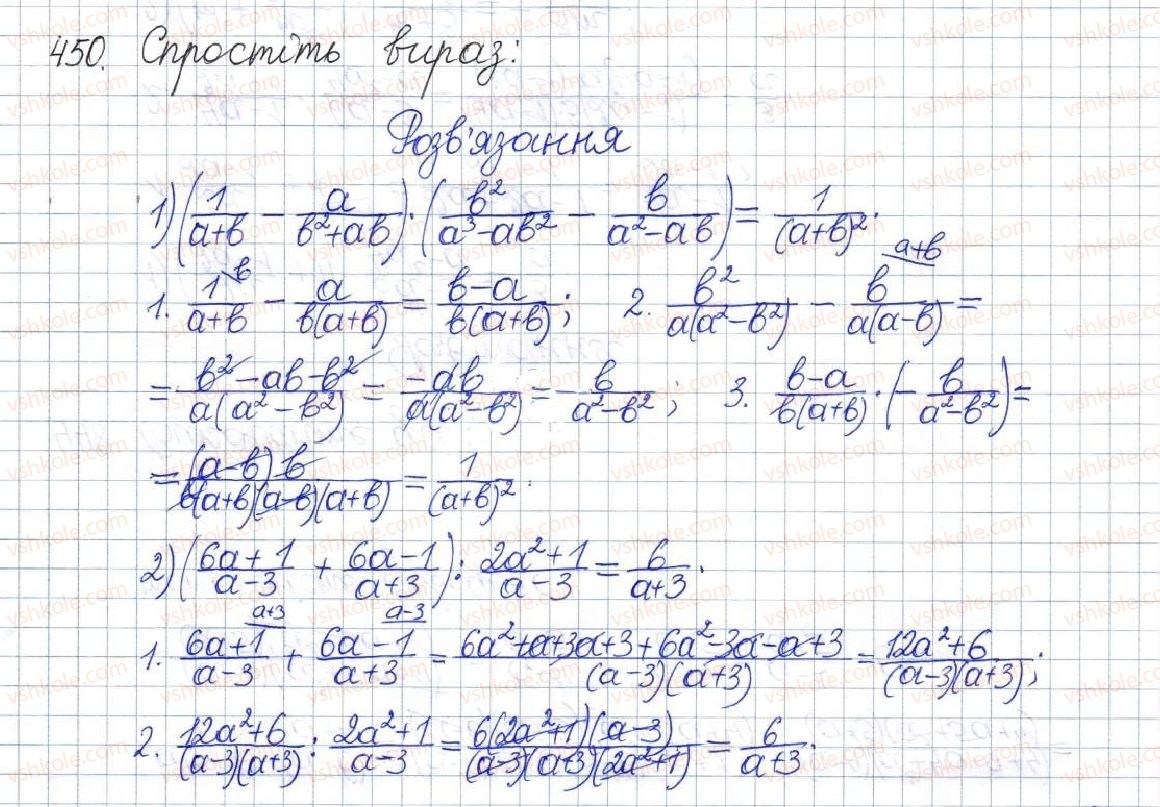 450. Спростіть вираз:
Розв'язання
1) (1/(a+b) − a/(b²+ab)) · (b²/(a³−ab²) − b/(a²−ab)) = 1/(a+b)².
1. 1/(a+b) ^b − a/(b(a+b)) = (b−a)/(b(a+b)); 2. b²/(a(a²−b²)) − b/(a(a−b)) ^(a+b) =
= (b²−ab−b²)/(a(a²−b²)) = −ab/(a(a²−b²)) = −b/(a²−b²); 3. (b−a)/(b(a+b)) · (−b/(a²−b²)) =
= ((a−b)b)/(b(a+b)(a−b)(a+b)) = 1/(a+b)².
2) ((6a+1)/(a−3) + (6a−1)/(a+3)) : (2a²+1)/(a−3) = 6/(a+3).
1. (6a+1)/(a−3) ^(a+3) + (6a−1)/(a+3) ^(a−3) = (6a²+a+3a+3+6a²−3a−a+3)/((a−3)(a+3)) = (12a²+6)/((a−3)(a+3));
2. (12a²+6)/((a−3)(a+3)) : (2a²+1)/(a−3) = (6(2a²+1)(a−3))/((a−3)(a+3)(2a²+1)) = 6/(a+3).
vshkole.com